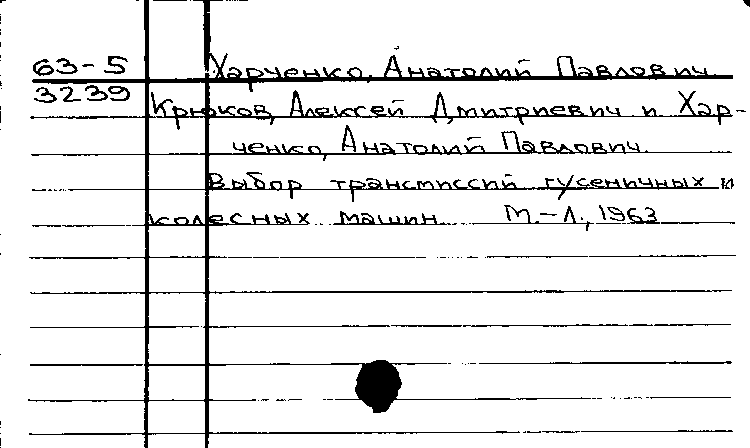 63-5 Харченко, Анатолий Павлович
3239 Крюков, Алексей Дмитриевич и Хар-
ченко, Анатолий Павлович.
Выбор трансмиссий гусеничных и
колесных машин М.-Л., 1963